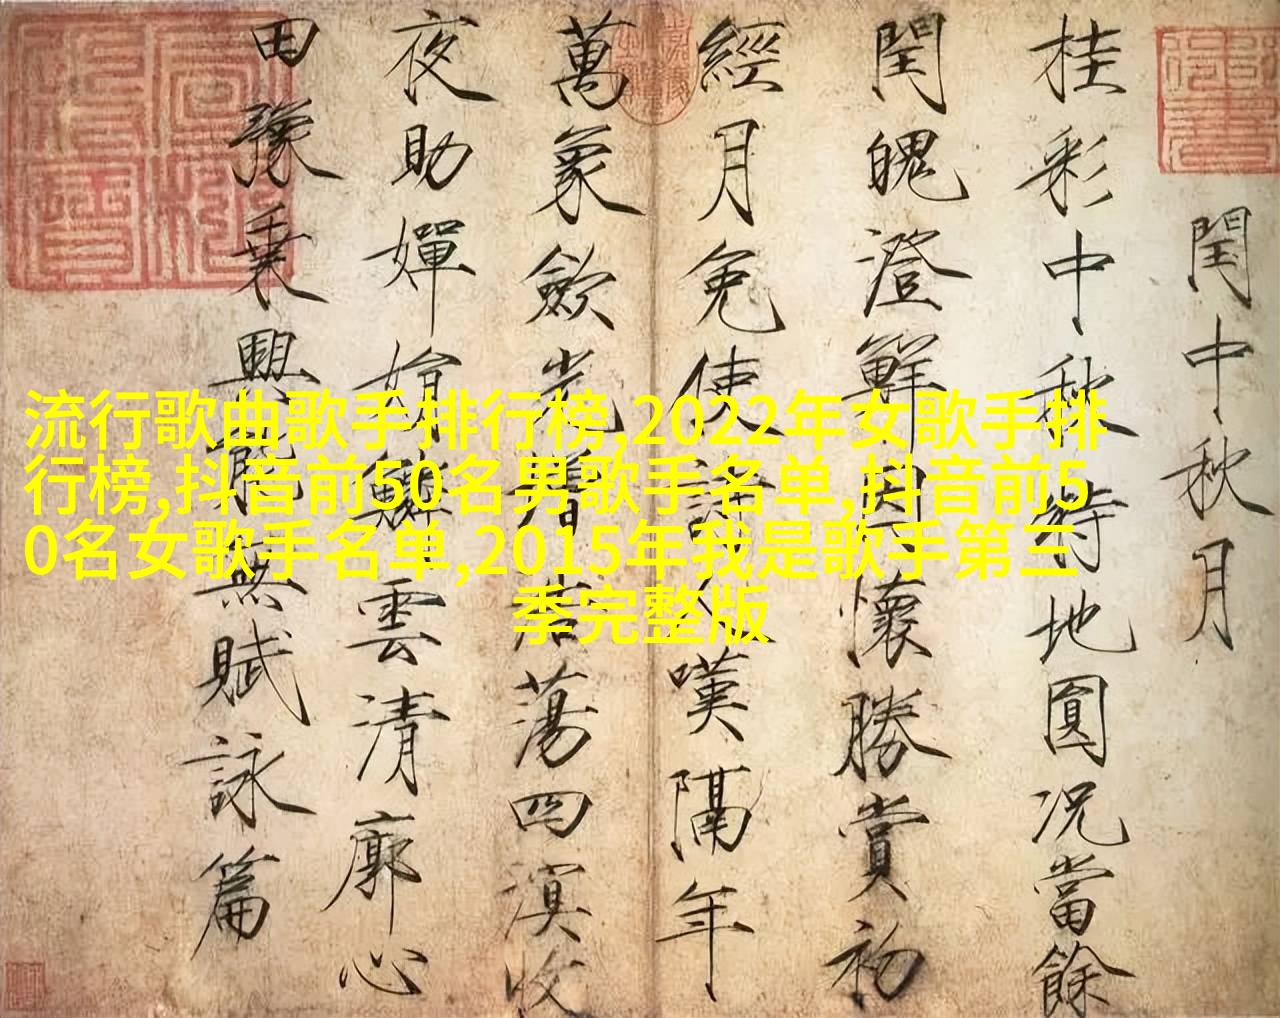 閏中秋月
桂彩中秋特地圓况當餘
閏魄澄鮮因懷勝賞初
經月免使詩人嘆隔年
萬象歛光增浩蕩四溟收
夜助嬋娟鱗雲清廓心
田豫乗興能無賦詠篇
流行歌曲歌手排行榜,2022年女歌手排
行榜,抖音前50名男歌手名单,抖音前5
0名女歌手名单,2015年我是歌手第三
季完整版